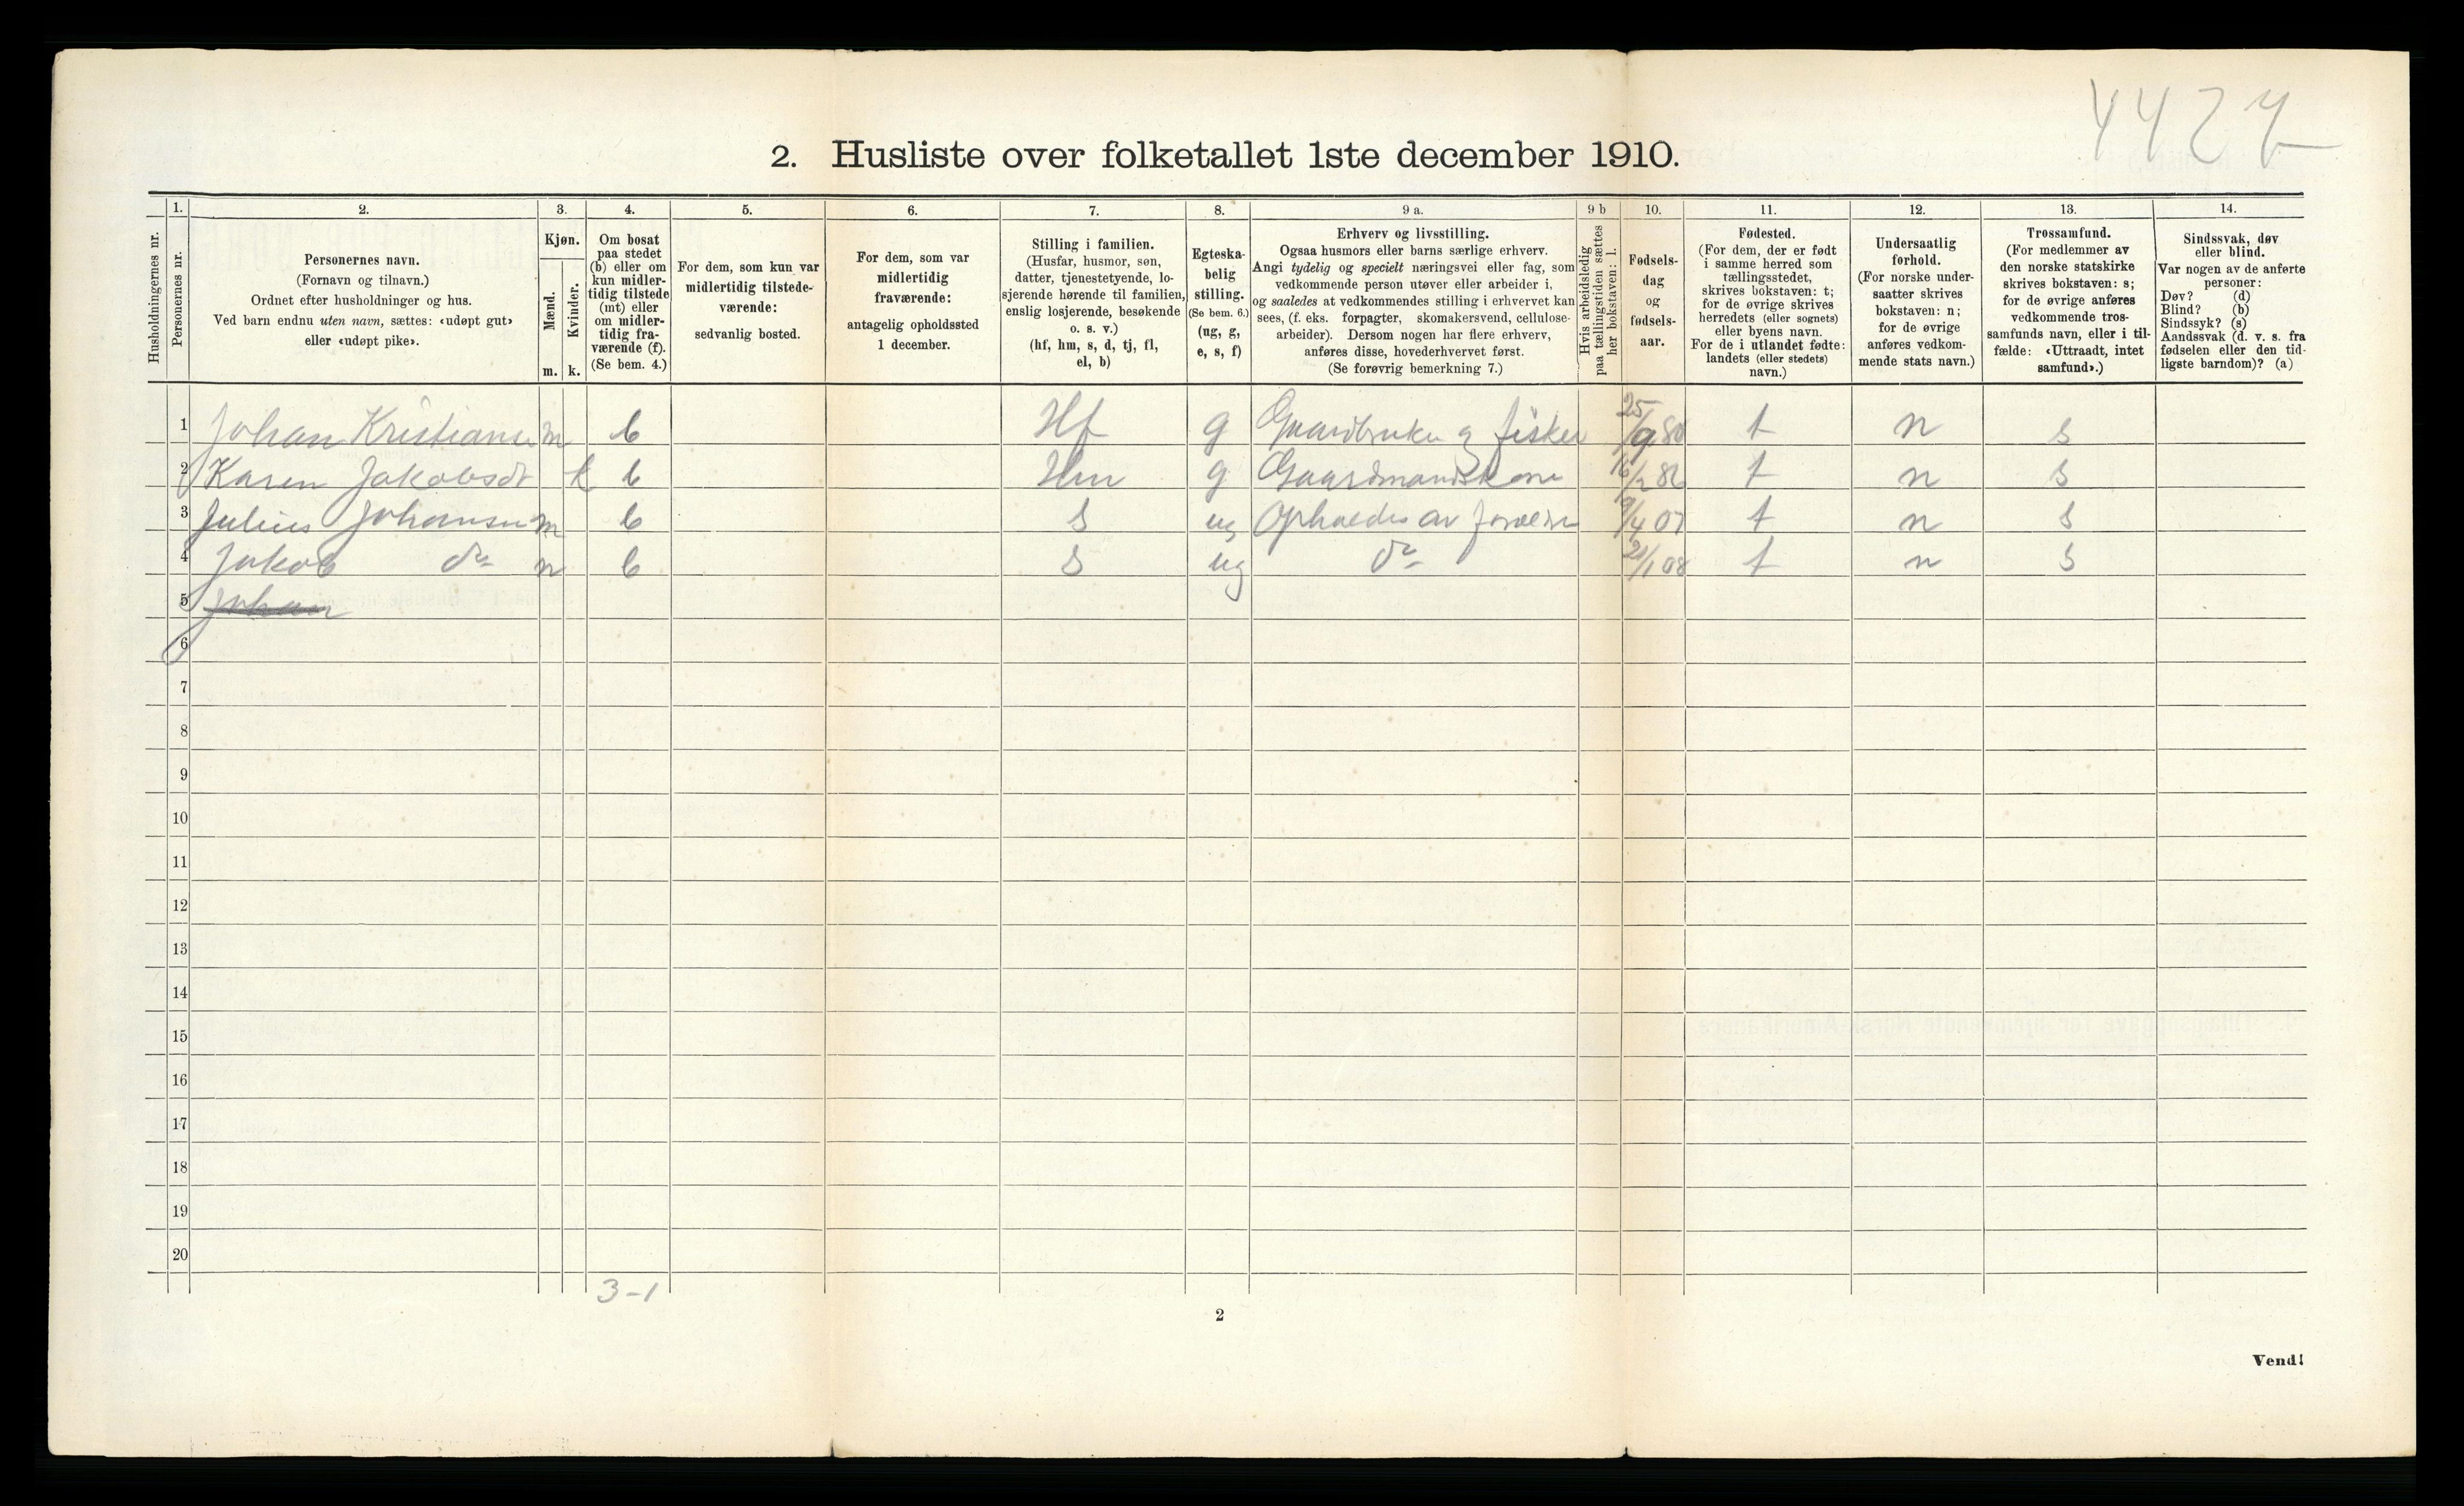 4427
2. Husliste over folketallet 1ste december 1910.
Husholdningernes nr.
1.
Personernes nr.
2.
Personernes navn.
(Fornavn og tilnavn.)
Ordnet efter husholdninger og hus.
Ved barn endnu uten navn, sættes: «udøpt gut»
eller «udøpt pike».
3.
Kjøn.
Mænd.
Kvinder.
m. k.
4.
Om bosat
paa stedet
(b) eller om
kun midler-
tidig tilstede
(mt) eller
om midler-
tidig fra-
værende (f).
(Se bem. 4.)
5.
For dem, som kun var
midlertidig tilstede-
værende:
sedvanlig bosted.
6.
For dem, som var
midlertidig
fraværende:
antagelig opholdssted
1 december.
7.
Stilling i familien.
(Husfar, husmor, søn,
datter, tjenestetyende, lo-
sjerende hørende til familien,
enslig losjerende, besøkende
o. s. v.)
(hf, hm, s, d, tj, fl,
el, b)
8.
Egteska-
belig
stilling.
(Se bem. 6.)
(ug, g,
e, s, f)
9 a.
Erhverv og livsstilling.
Ogsaa husmors eller barns særlige erhverv.
Angi tydelig og specielt næringsvei eller fag, som
vedkommende person utøver eller arbeider i,
og saaledes at vedkommendes stilling i erhvervet kan
sees, (f. eks. forpagter, skomakersvend, cellulose-
arbeider). Dersom nogen har flere erhverv,
anføres disse, hovederhvervet først.
(Se forøvrig bemerkning 7.)
9 b
Hvis arbeidsledig
paa tællingstiden sættes
her bokstaven: l.
10.
Fødsels-
dag
og
fødsels-
aar.
11.
Fødested.
(For dem, der er født
i samme herred som
tællingsstedet,
skrives bokstaven: t;
for de øvrige skrives
herredets (eller sognets)
eller byens navn.
For de i utlandet fødte:
landets (eller stedets)
navn.)
12.
Undersaatlig
forhold.
(For norske under-
saatter skrives
bokstaven: n;
for de øvrige
anføres vedkom-
mende stats navn.)
13.
Trossamfund.
(For medlemmer av
den norske statskirke
skrives bokstaven: s;
for de øvrige anføres
vedkommende tros-
samfunds navn, eller i til-
fælde: «Uttraadt, intet
samfund».)
14.
Sindssvak, døv
eller blind.
Var nogen av de anførte
personer:
Døv? (d)
Blind? (b)
Sindssyk? (s)
Aandssvak (d. v. s. fra
fødselen eller den tid-
ligste barndom)? (a)
1 Johan Kristianse m b Hf g Gaardbruker og fisker 25/9 80 t n s
2 Karen Jakobsdt k b Hm g Gaardmandskone 16/2 86 t n s
3 Julius Johansen m b s ug Opholdes av foreldre 9/4 07 t n s
4 Jakob do m b s ug do 21/1 08 t n s
5 Johan
6
7
8
9
10
11
12
13
14
15
16
17
18
19
20
3-1
2
Vend!